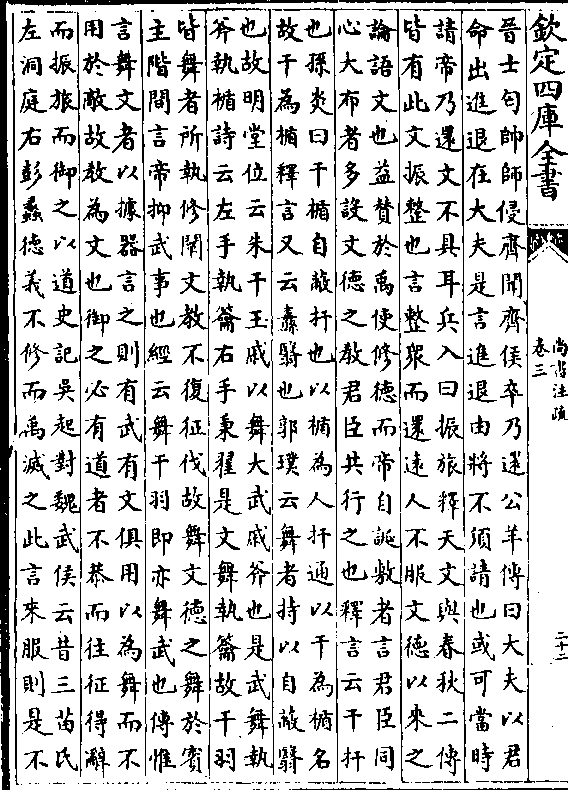 欽定四庫全書
尚書注疏
卷三
二十二
晉士匄帥師侵齊聞齊侯卒乃還公羊傳曰大夫以君
命出進退在大夫是言進退由將不須請也或可當時
請帝乃還文不具耳兵入曰振旅釋天文與春秋二傳
皆有此文振整也言整衆而還遠人不服文德以來之
論語文也益贊於禹使修德而帝自誕敷者言君臣同
心大布者多設文德之教君臣共行之也釋言云干扞
也孫炎曰干楯自蔽扞也以楯為人扞通以干為楯名
故干為楯釋言又云纛翳也郭璞云舞者持以自蔽翳
也故明堂位云朱干玉戚以舞大武戚斧也是武舞執
斧執楯詩云左手執籥右手秉翟是文舞執籥故干羽
皆舞者所執修闡文教不復征伐故舞文德之舞於賓
主階間言帝抑武事也經云舞干羽即亦舞武也傳惟
言舞文者以據器言之則有武有文俱用以為舞而不
用於敵故教為文也御之必有道者不恭而往征得辭
而振旅而御之以道史記吳起對魏武侯云昔三苗氏
左洞庭右彭蠡德義不修而禹滅之此言來服則是不